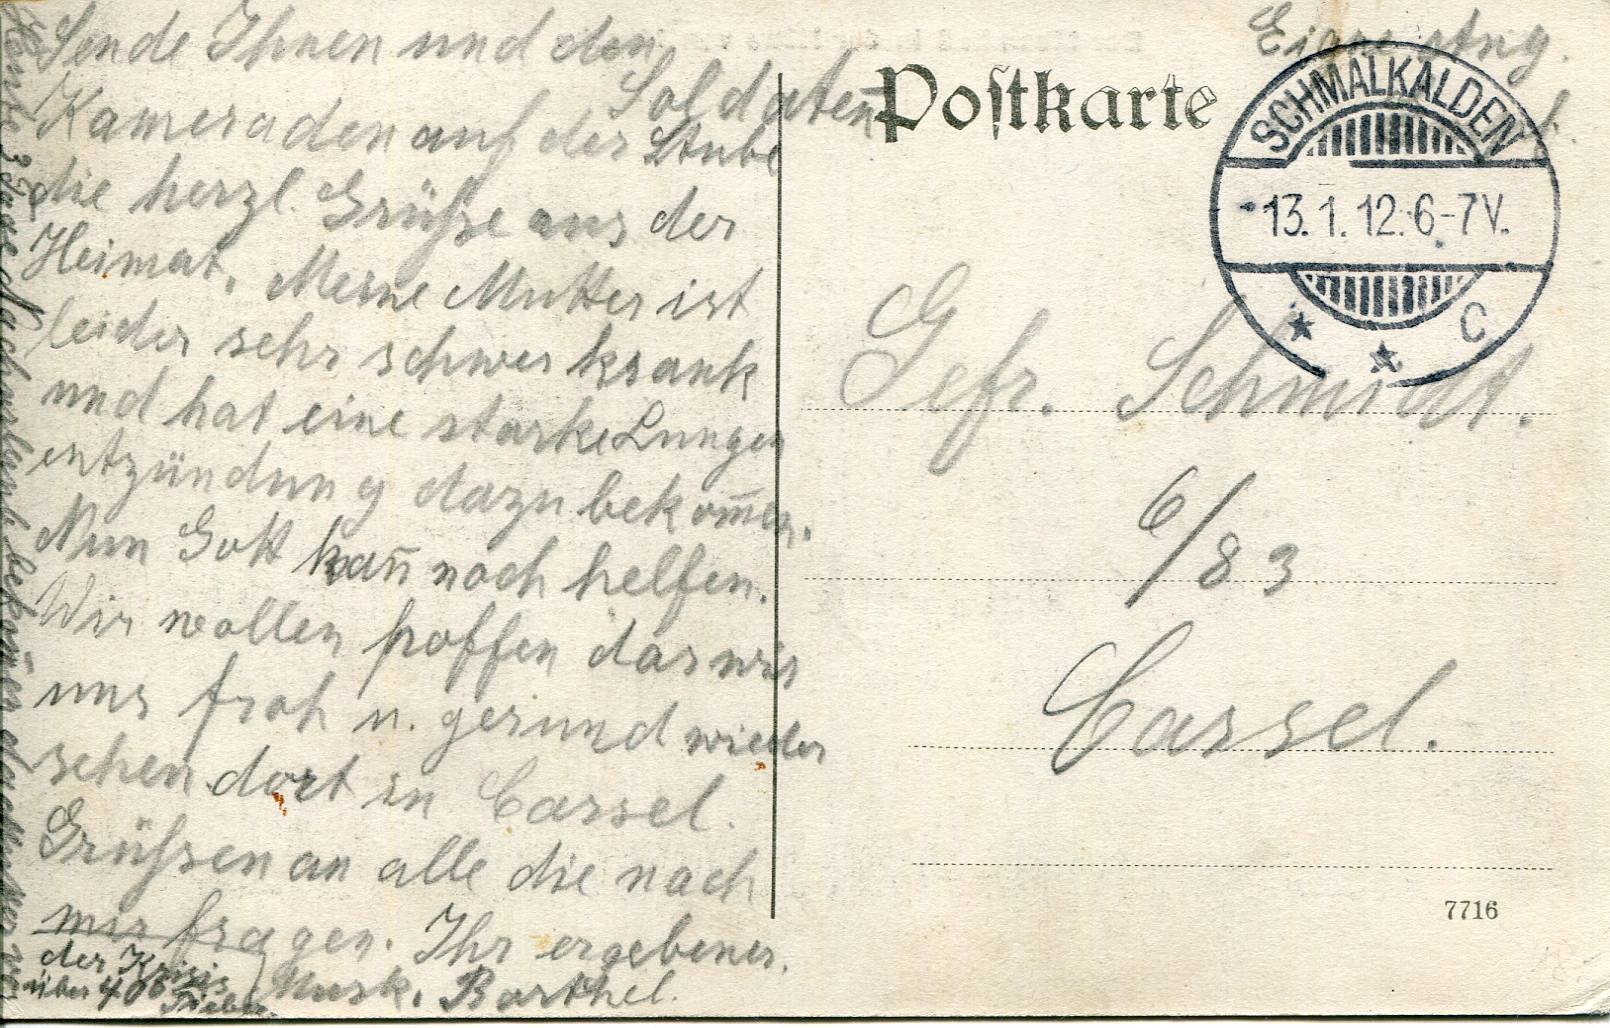 Sende Ihnen und den
Soldaten
Kameraden auf der Stube
die herzl. Grüße aus der
Heimat. Meine Mutter ist
leider sehr schwer krank
und hat eine starke Lungen
entzündung dazu bekom̅en.
Nun Gott kan̅ noch helfen.
Wir wollen hoffen das wir
uns froh u. gesund wieder
sehen dort in Cassel.
Grüßen an alle die nach
mir fragen. Ihr ergebener
Musk. Barthel.
der Krisis
über 40° Fieber.
3 Tage Nachurlaub bekom̅en
Postkarte
Eigene Ang.
SCHMALKALDEN
13.1.12.6-7V.
* * C
Gefr. Schmidt.
6/83
Cassel.
7716